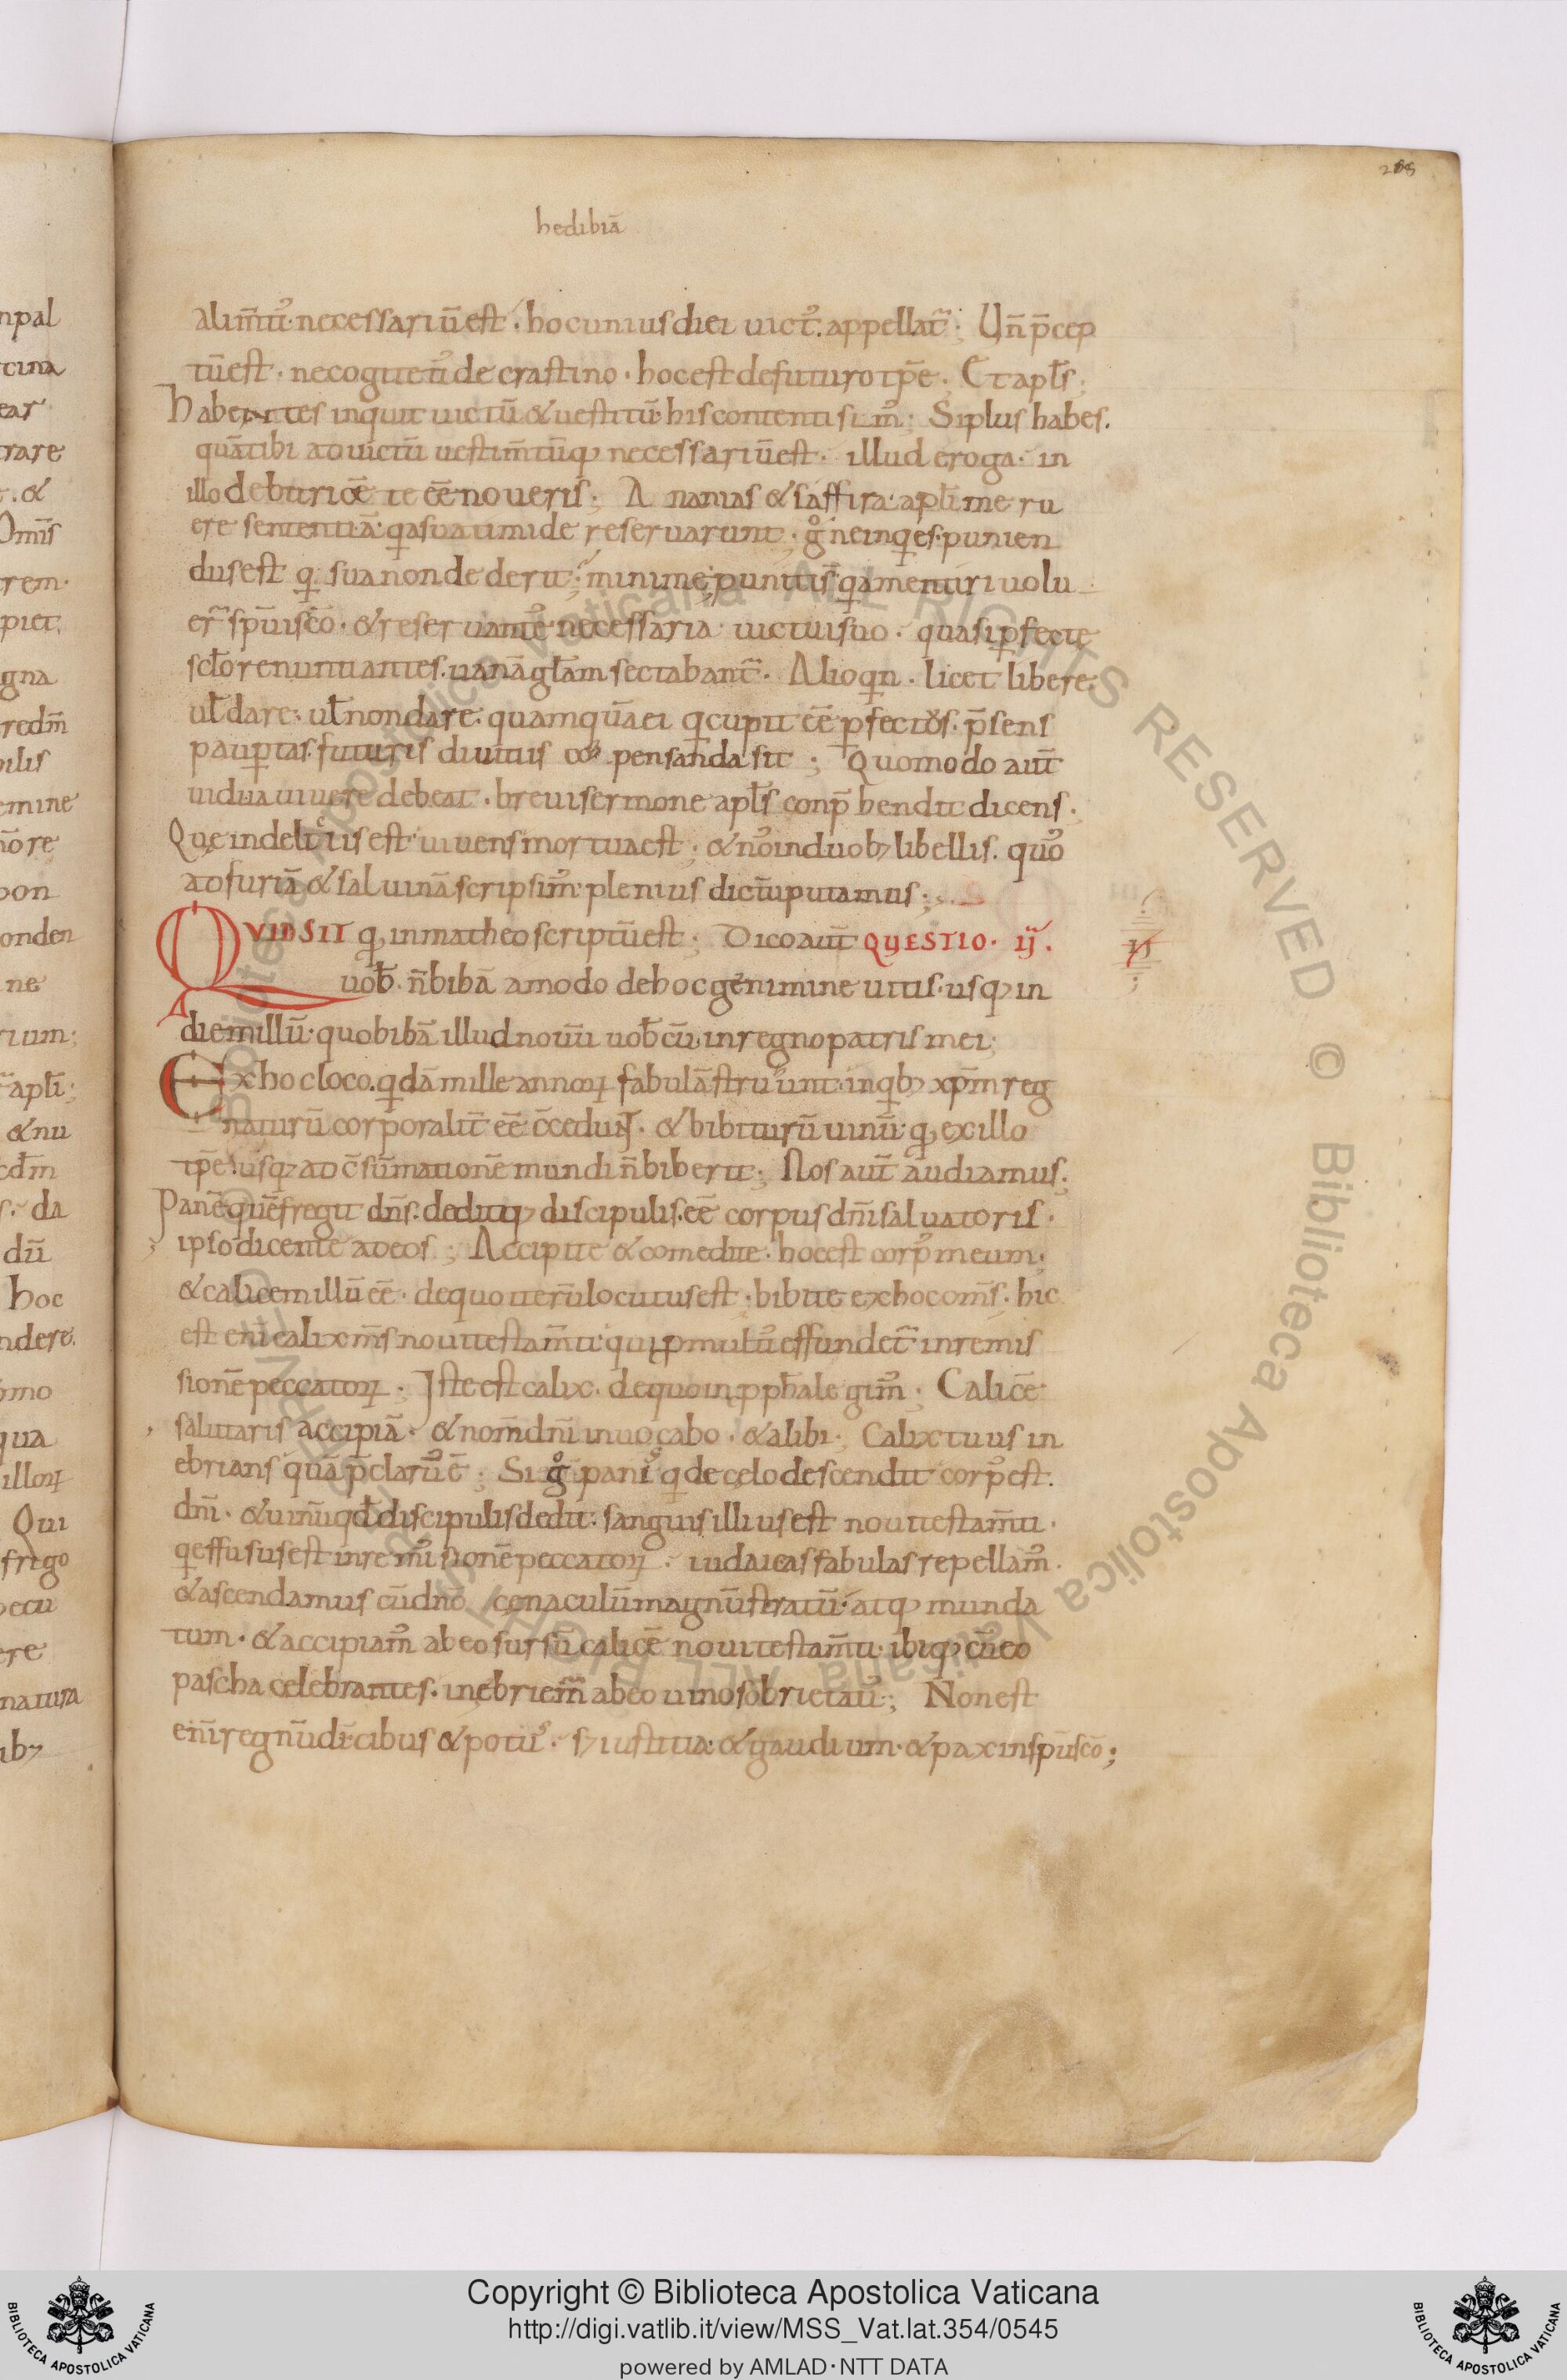 208
hedibiā
alim̄tū necessariū est. hoc unius diei uict᷒ appellat̄; Un̄ p̄cep
tū est. ne cogitet᷒ de crastino. hoc est de futuro tp̄e. Et apl̄s;
Habentes inquit uictū & uestitū his contenti sim᷒; Si plus habes.
quā tibi ad uictū uestim̄tūq; necessariū est. illud eroga. in
illo debitricē te eē noueris; Ananias & saffira apl̄i meru
ere sententiā qa sua timide reseruarunt. g̊ ne inqes punien
dus est q sua non dederit; minime; puniti sī qa mentiri uolu
er̄ sp̄ui scō. & reseruantes necessaria uictui suo. quasi pfecte
sclō renuntiantes. uanā glām sectabant̄. Alioqn. licet libere
ul̄ dare. ul̄ non dare. quamquā ei q cupit eē pfectus. p̄sens
paupertas. futuris diuitiis compensanda sit; Quomodo aut̄
uidua uiuere debeat. breui sermone apl̄s conp̄hendit dicens.
Que in delitiis est uiuens mortua est; & nos in duob; libellis. quos
ad furiā & saluinā scripsim᷒ plenius dictū putamus;
QVID SIT q in matheo scriptū est; Dico aut̄ QUESTIO. ij.
ij
uob̄. n̄ bibā amodo de hoc genimine uitis. usq; in
diem illū. quo bibā illud nouū uob̄cū in regno patris mei;
Ex hoc loco. qdā mille annoꝝ fabulā struunt. in qb; xp̄m reg
naturū corporalit̄ eē c̄tendunt. & bibiturū uinū q ex illo
tp̄e usq; ad c̄sūmationē mundi n̄ biberit; Nos aut̄ audiamus;
Panē quē fregit dn̄s. deditq; discipulis. eē corpus dn̄i saluatoris.
ipso dicente ad eos; Accipite & comedite. hoc est corp᷒ meum;
& calicem illū eē. de quo iterū locutus est. bibite ex hoc om̄s. hic
est eni calix m̄s noui testam̄ti. qui p multis effundet̄ in remis
sionē peccatoꝝ. Iste est calix. de quo in pph̄a legim᷒; Calicē
salutaris accipiā. & nom̄ dn̄i inuocabo. & alibi; Calix tuus in
ebrians quā p̄clarus ē; Si g̊ panis q de celo descendit corp᷒ est.
dn̄i. & uinū qd̄ discipulis dedit. sanguis illius est noui testam̄ti.
q effusus est in remissionē peccatoꝝ. iudaicas fabulas repellam᷒.
& ascendamus cū dn̄o cenaculū magnū stratū. atq; munda
tum. & accipiam᷒ ab eo sursū calicē noui testam̄ti. ibiq; cū eo
pascha celebrantes. inebriem̄ ab eo uino sobrietatis; Non est
eni regnū dī cibus & potus. s; iustitia. & gaudium. & pax in sp̄u scō;
npal
cina
ear
rare
. &
Omīs
rem.
piet.
gna
redm̄
ilis
emine
n̄ore
bon
onden
ne
rium;
apl̄i;
& nu
s. da
dū
hoc
ndere.
omo
qua
illoꝝ
Qui
frigo
ecu
ere
natura
ib;
Biblioteca Apostolica Vaticana ALL RIGHTS RESERVED © Biblioteca Apostolica Vaticana ALL RIGHTS RESERVED ©
Copyright © Biblioteca Apostolica Vaticana
http://digi.vatlib.it/view/MSS_Vat.lat.354/0545
powered by AMLAD·NTT DATA
BIBLIOTECA APOSTOLICA VATICANA
BIBLIOTECA APOSTOLICA VATICANA